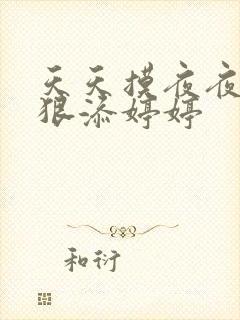 天天摸夜夜
狠添婷婷
和衍